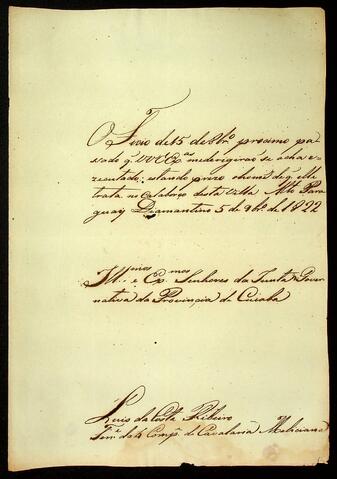 O Officio de 15 de 8br.o procimo pa-
sado q VV Ex.as me deregirão se acha e-
zecutado; estando prezo o home de q elle
trata no Calabouço desta Villa Alto Para-
guay Diamantino 5 de 9br.o de 1822
Ill.mos e Ex.mos Senhores da Junta Gover-
nativa da Provincia de Cuiabá
Luis da Costa Ribeiro
Ten.e da 4 Comp.a de Cavalaria Meliciana